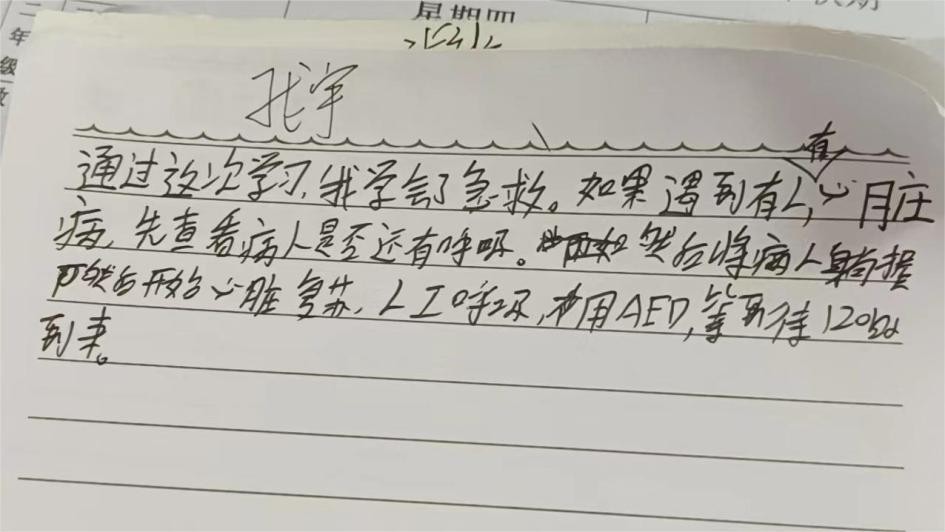 星期四
二年级
通过这次学习,我学会了急救。如果遇到有人,有心脏
病,先查看病人是否还有呼吸。然后将病人
然后开始心脏复苏,人工呼吸,使用AED,等到待120的
到来。